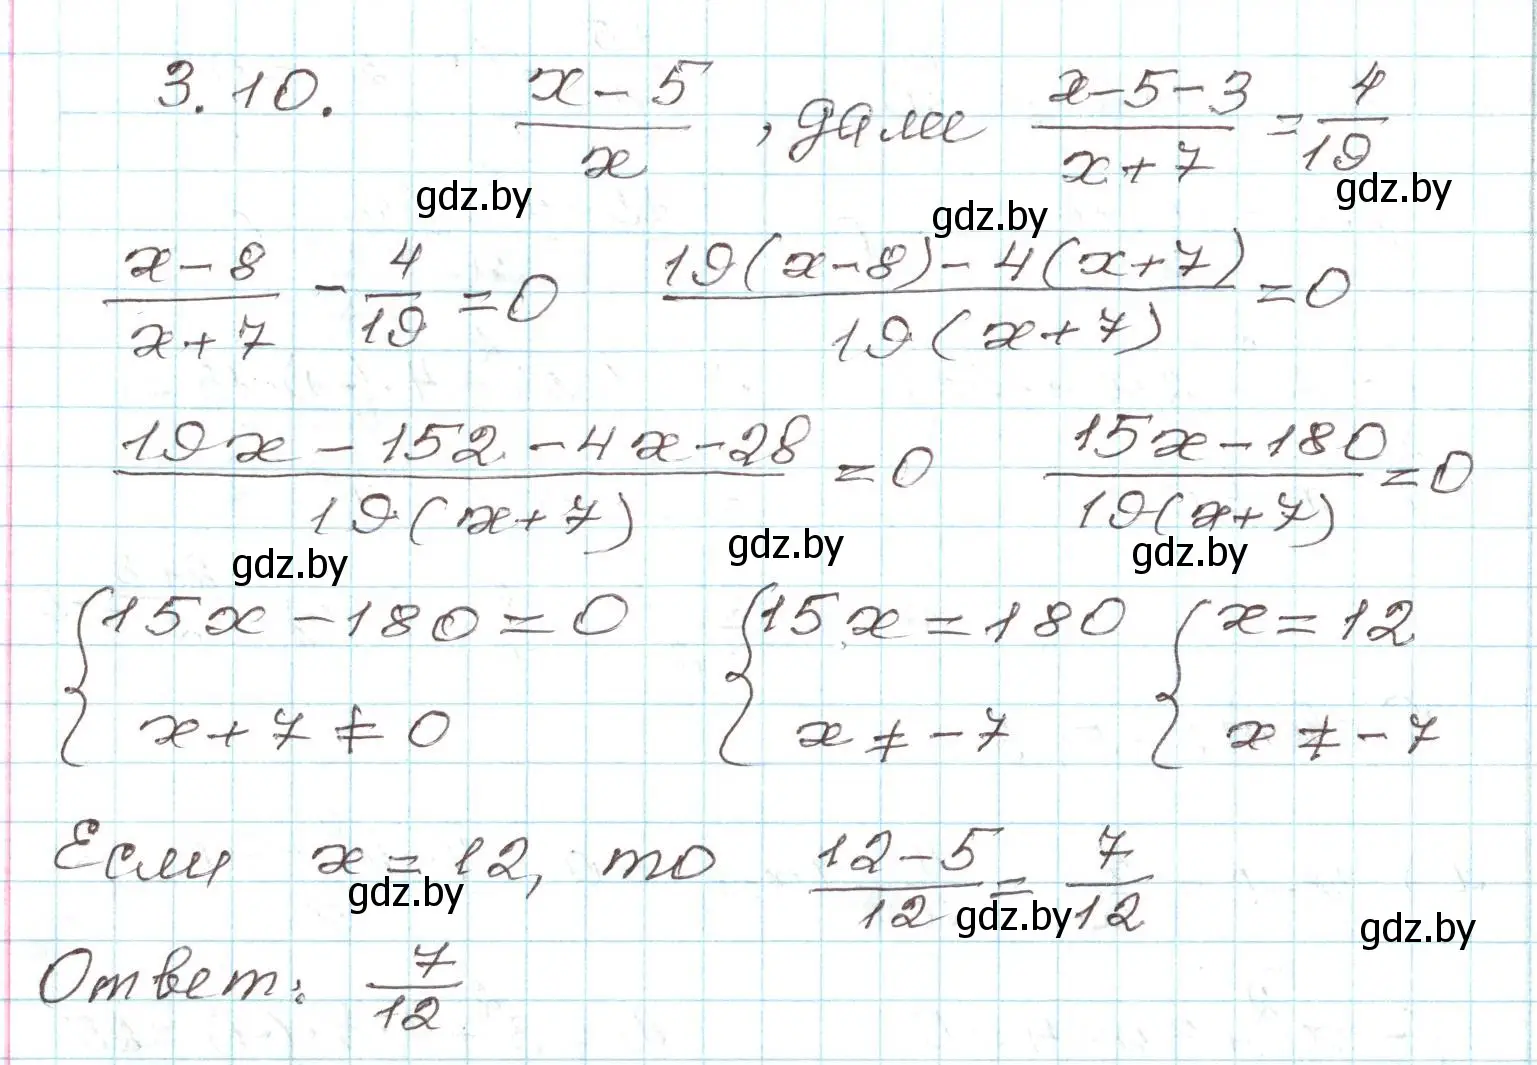 3.10. (x-5)/x, далее (x-5-3)/(x+7) = 4/19
gdz.by gdz.by gdz.by
(x-8)/(x+7) - 4/19 = 0 (19(x-8)-4(x+7))/(19(x+7)) = 0
(19x-152-4x-28)/(19(x+7)) = 0 (15x-180)/(19(x+7)) = 0
gdz.by gdz.by gdz.by
{15x-180=0 {15x=180 {x=12
x+7≠0 x≠-7 x≠-7
Если x=12, то (12-5)/12 = 7/12
gdz.by gdz.by gdz.by
Ответ: 7/12